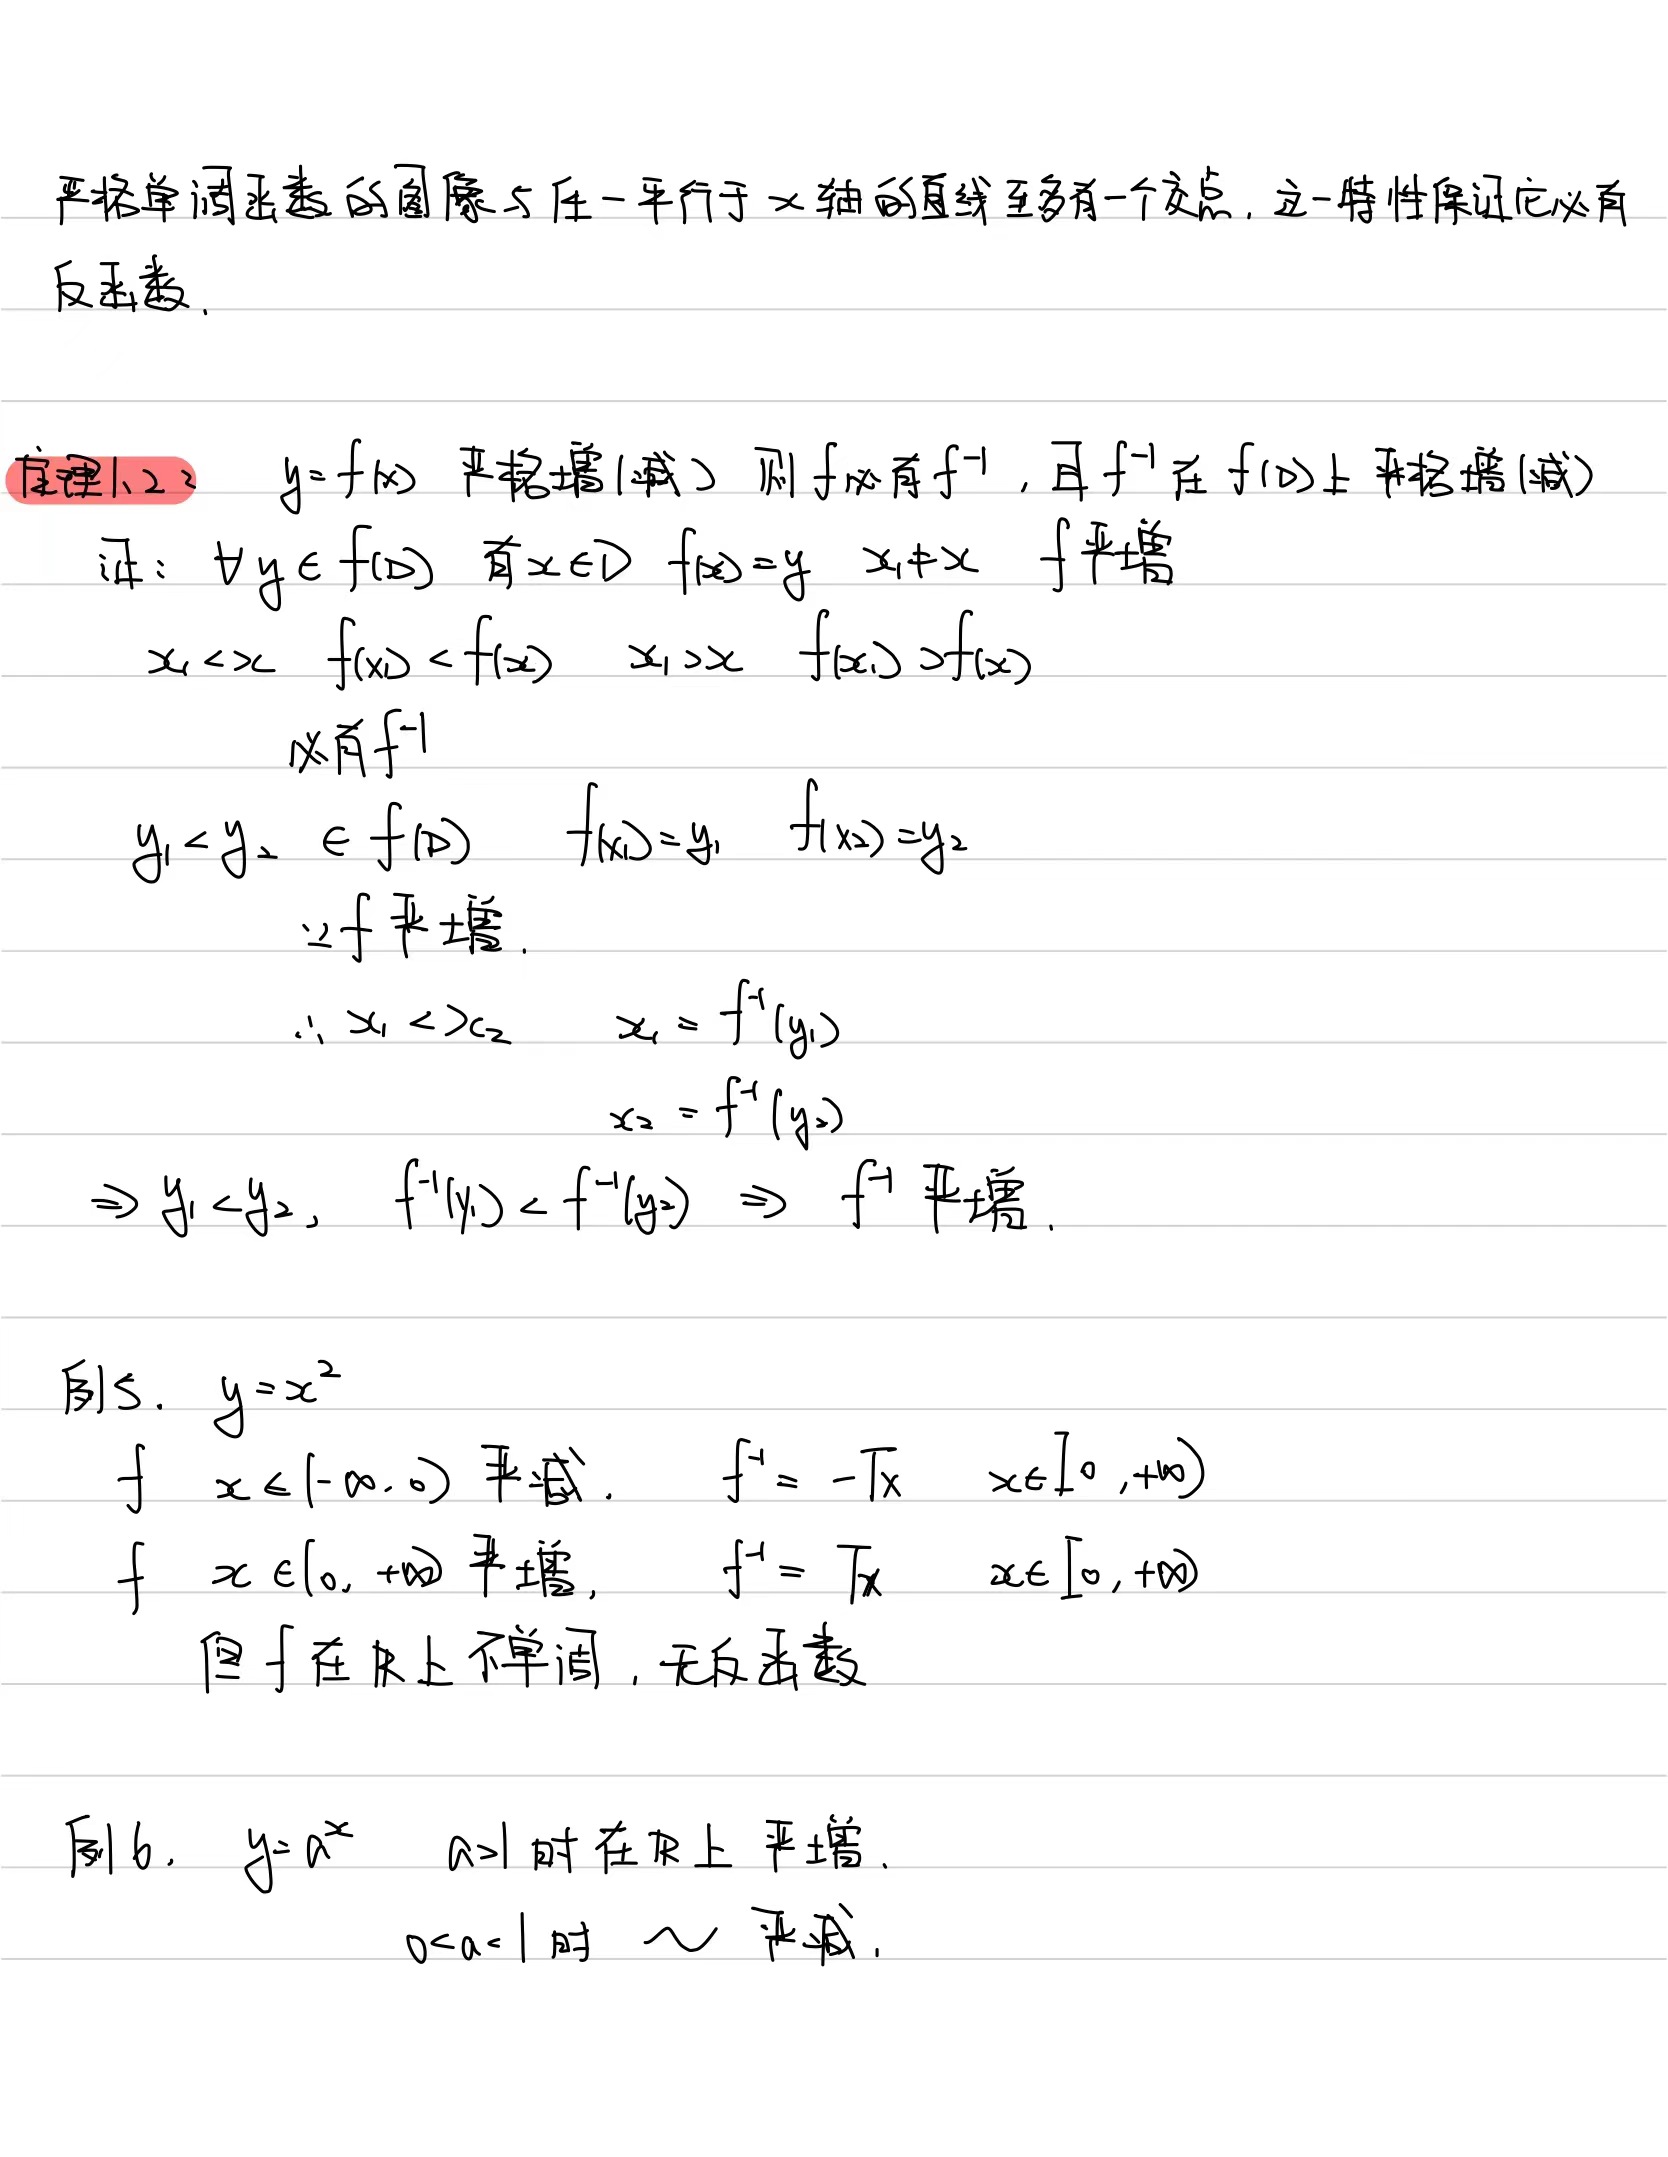 严格单调函数的图像与任一平行于x轴的直线至多有一个交点,这一特性保证它必有
反函数.
定理1.2.2 y=f(x) 严格增(减) 则f必有f⁻¹,且f⁻¹在f(D)上严格增(减)
证: ∀y∈f(D) 有x∈D f(x)=y x₁≠x f严增
x₁<x f(x₁)<f(x) x₁>x f(x₁)>f(x)
必有f⁻¹
y₁<y₂ ∈f(D) f(x₁)=y₁ f(x₂)=y₂
∵f严增.
∴x₁<x₂ x₁=f⁻¹(y₁)
x₂=f⁻¹(y₂)
⇒y₁<y₂, f⁻¹(y₁)<f⁻¹(y₂) ⇒ f⁻¹严增.
例5. y=x²
f x∈(-∞,0) 严减. f⁻¹=-√x x∈[0,+∞)
f x∈[0,+∞) 严增, f⁻¹=√x x∈[0,+∞)
但f在R上不单调,无反函数
例6. y=aˣ a>1时在R上严增.
0<a<1时 ~ 严减.